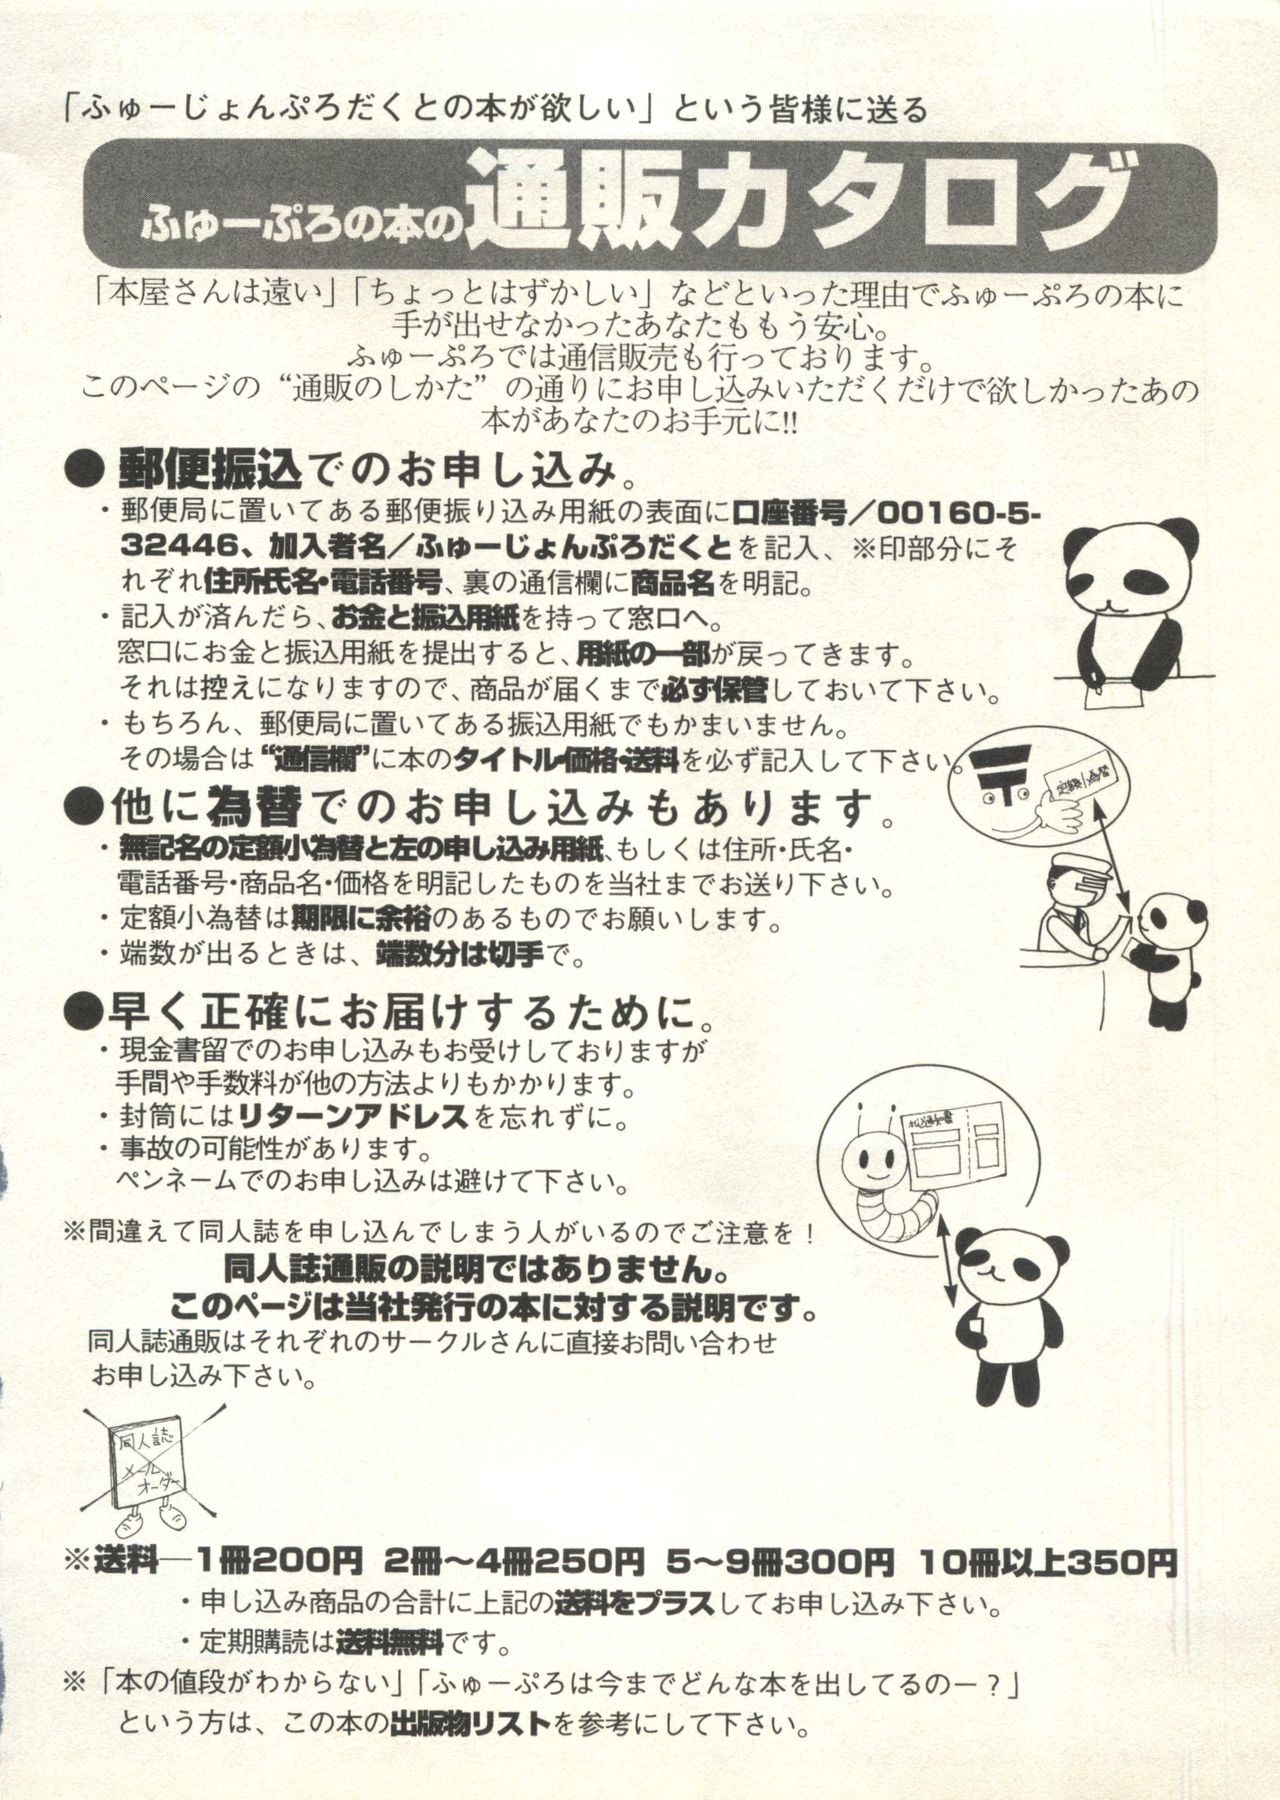 「ふゅーじょんぷろだくとの本が欲しい」という皆様に送る
ふゅーぷろの本の通販カタログ
「本屋さんは遠い」「ちょっとはずかしい」などといった理由でふゅーぷろの本に
手が出せなかったあなたももう安心。
ふゅーぷろでは通信販売も行っております。
このページの“通販のしかた”の通りにお申し込みいただくだけで欲しかったあの
本があなたのお手元に!!
●郵便振込でのお申し込み。
・郵便局に置いてある郵便振り込み用紙の表面に口座番号／00160-5-
32446、加入者名／ふゅーじょんぷろだくとを記入、※印部分にそ
れぞれ住所・氏名・電話番号、裏の通信欄に商品名を明記。
・記入が済んだら、お金と振込用紙を持って窓口へ。
窓口にお金と振込用紙を提出すると、用紙の一部が戻ってきます。
それは控えになりますので、商品が届くまで必ず保管しておいて下さい。
・もちろん、郵便局に置いてある振込用紙でもかまいません。
その場合は“通信欄”に本のタイトル・価格・送料を必ず記入して下さい。
定額小為替
●他に為替でのお申し込みもあります。
・無記名の定額小為替と左の申し込み用紙、もしくは住所・氏名・
電話番号・商品名・価格を明記したものを当社までお送り下さい。
・定額小為替は期限に余裕のあるものでお願いします。
・端数が出るときは、端数分は切手で。
●早く正確にお届けするために。
・現金書留でのお申し込みもお受けしておりますが
手間や手数料が他の方法よりもかかります。
・封筒にはリターンアドレスを忘れずに。
・事故の可能性があります。
ペンネームでのお申し込みは避けて下さい。
払込通知書
※間違えて同人誌を申し込んでしまう人がいるのでご注意を！
同人誌通販の説明ではありません。
このページは当社発行の本に対する説明です。
同人誌通販はそれぞれのサークルさんに直接お問い合わせ
お申し込み下さい。
同人誌
メール
オーダー
※送料―1冊200円 2冊〜4冊250円 5〜9冊300円 10冊以上350円
・申し込み商品の合計に上記の送料をプラスしてお申し込み下さい。
・定期購読は送料無料です。
※「本の値段がわからない」「ふゅーぷろは今までどんな本を出してるのー？」
という方は、この本の出版物リストを参考にして下さい。